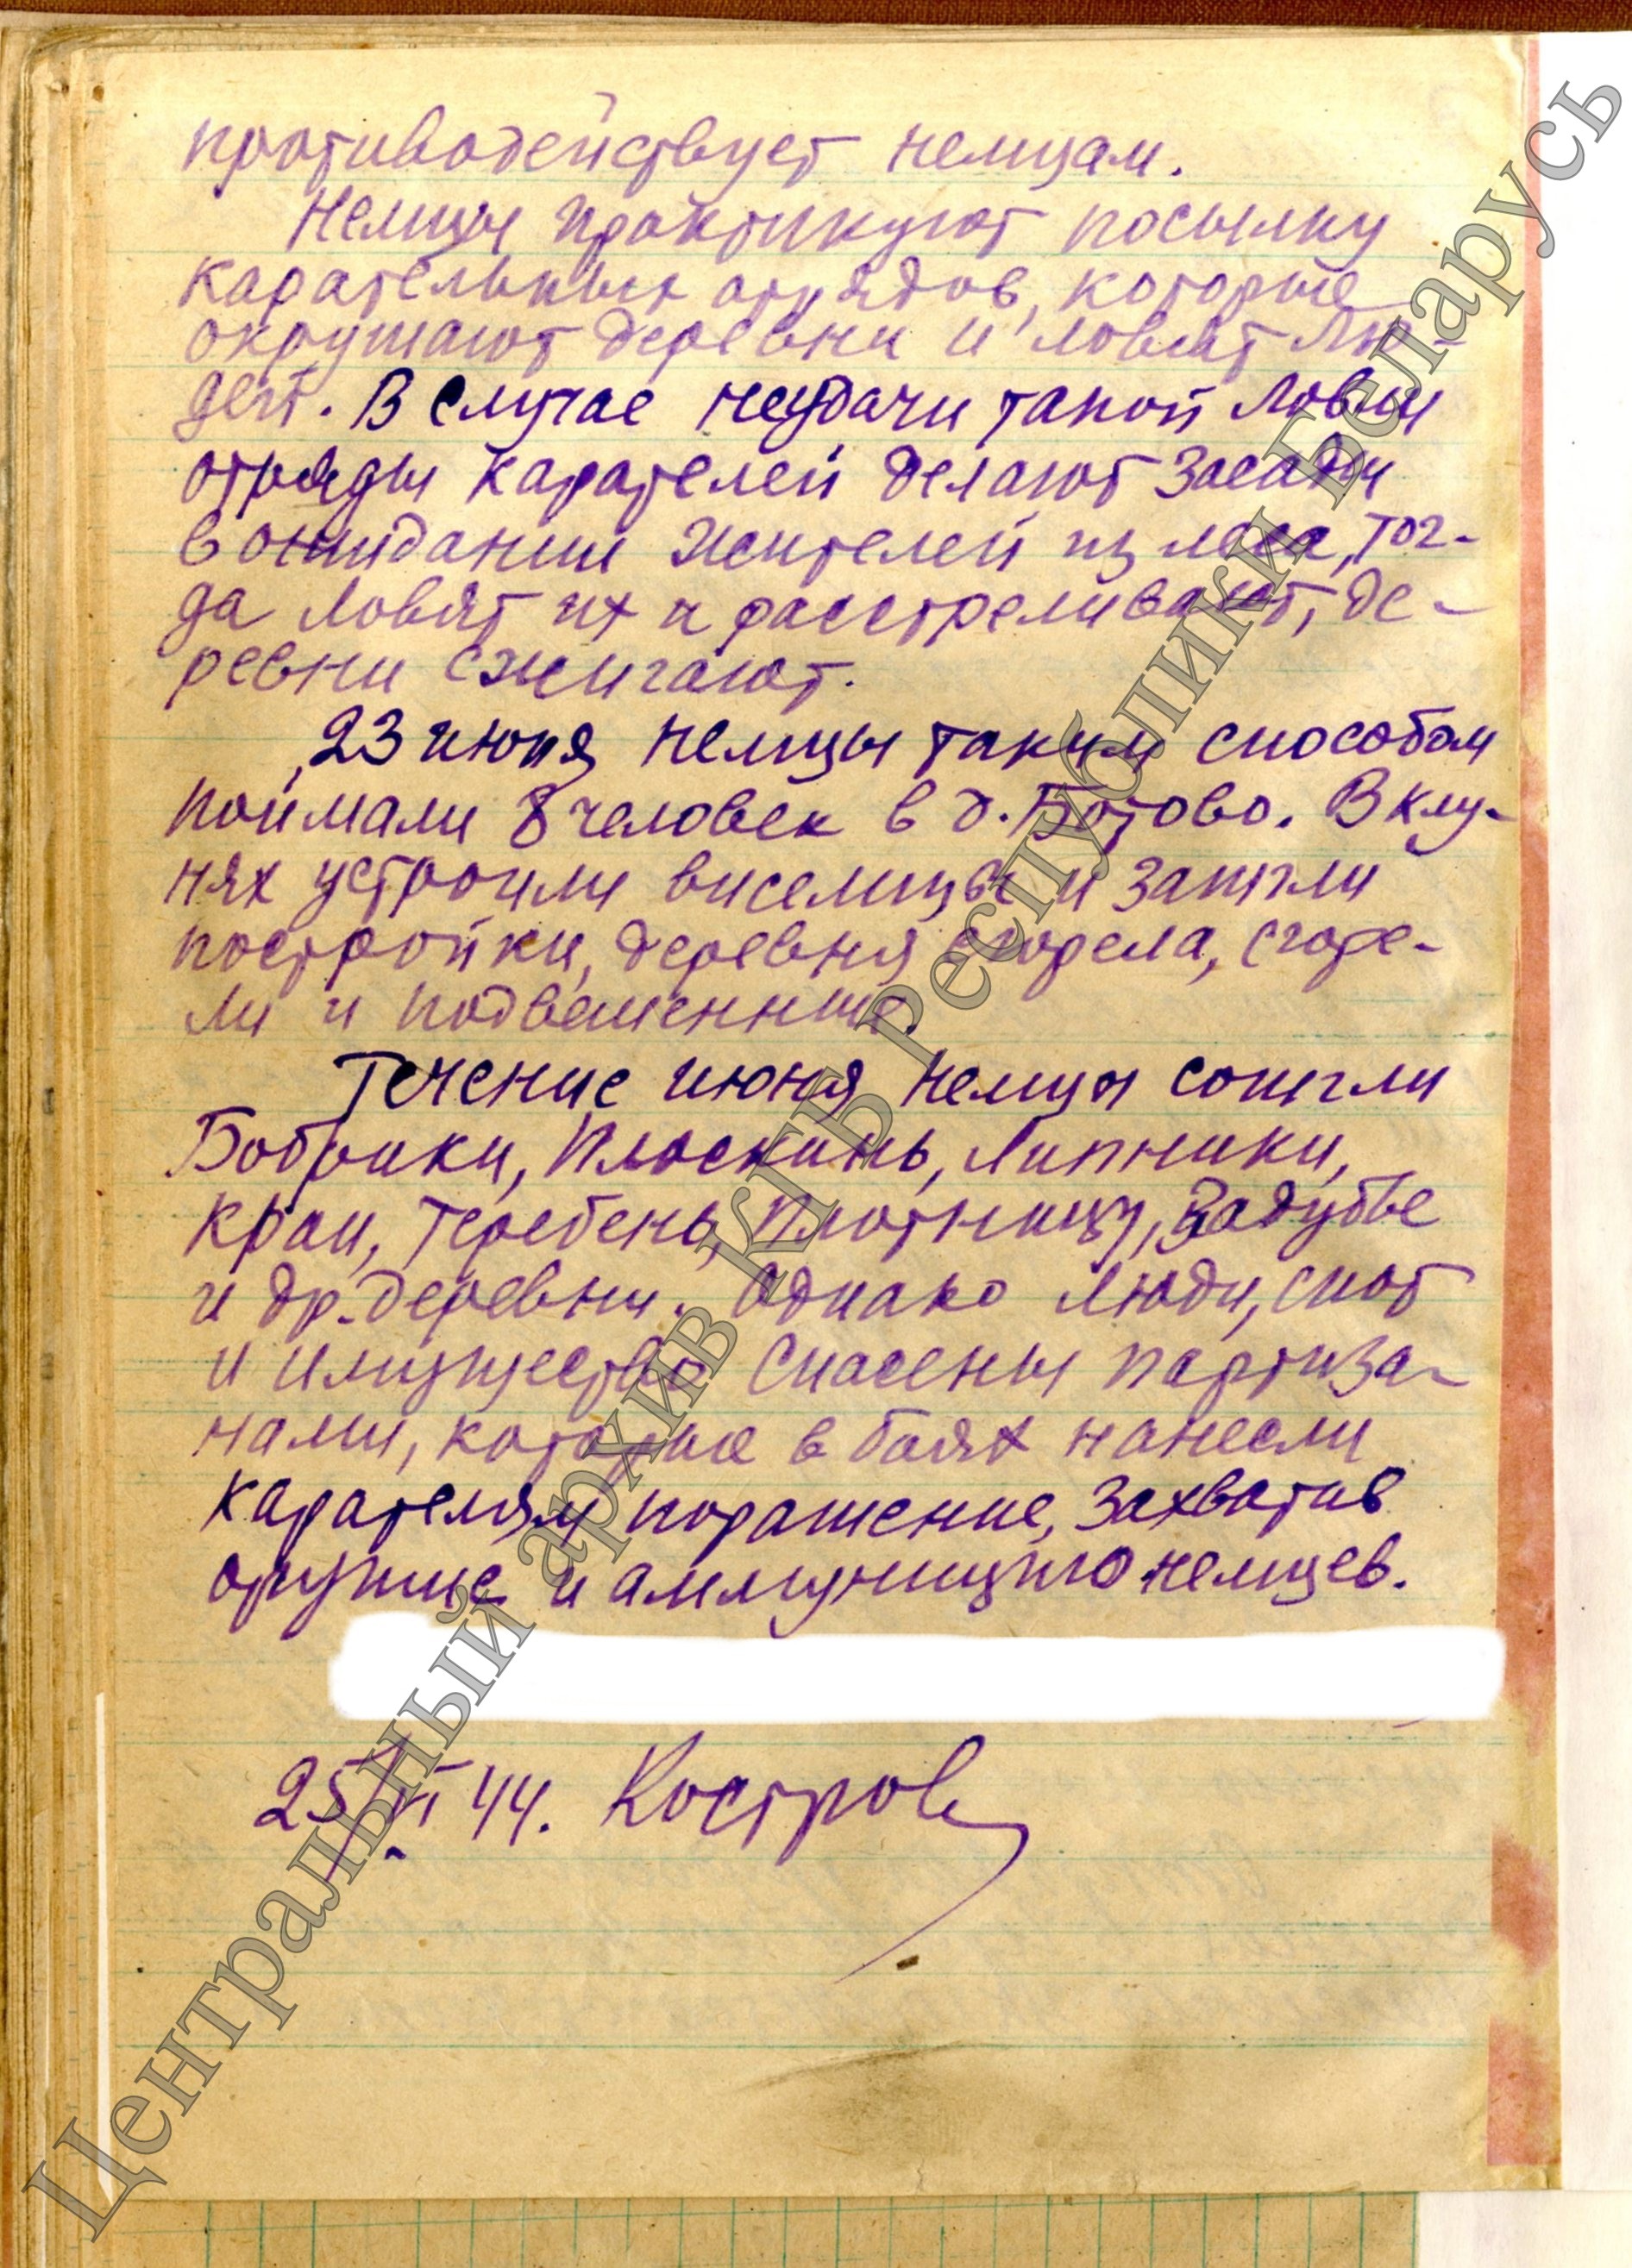 противодействует немцам.
Немцы практикуют посылку
карательных отрядов, которые
окружают деревни и ловят лю-
дей. В случае неудачи такой ловли
отряды карателей делают засады
в ожидании жителей из леса, тог-
да ловят их и расстреливают, де-
ревни сжигают.
23 июня немцы таким способом
поймали 8 человек в д. Ботово. В клу-
нях устроили виселицы и зажгли
постройки, деревня сгорела, сгоре-
ли и подвешенные.
Течение июня немцы сожгли
Бобрики, Плоскинь, Липники,
Край, Теребень, Плотницу, Задубье
и др. деревни. Однако люди, скот
и имущество спасены партиза-
нами, которые в боях нанесли
карателям поражение, захватив
оружие и аммуницию немцев.
25/VI 44. Костров
Центральный архив КГБ Республики Беларусь